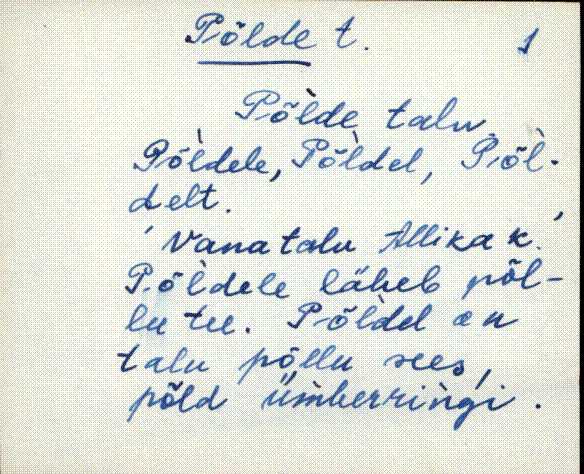 Põlde t.
1
Põlde talu.
Põldele, Põldel, Põl-
delt.
Vanatalu Allika k.
Põldele läheb põl-
lu tee. Põldel on
talu põllu sees,
põld ümberringi.